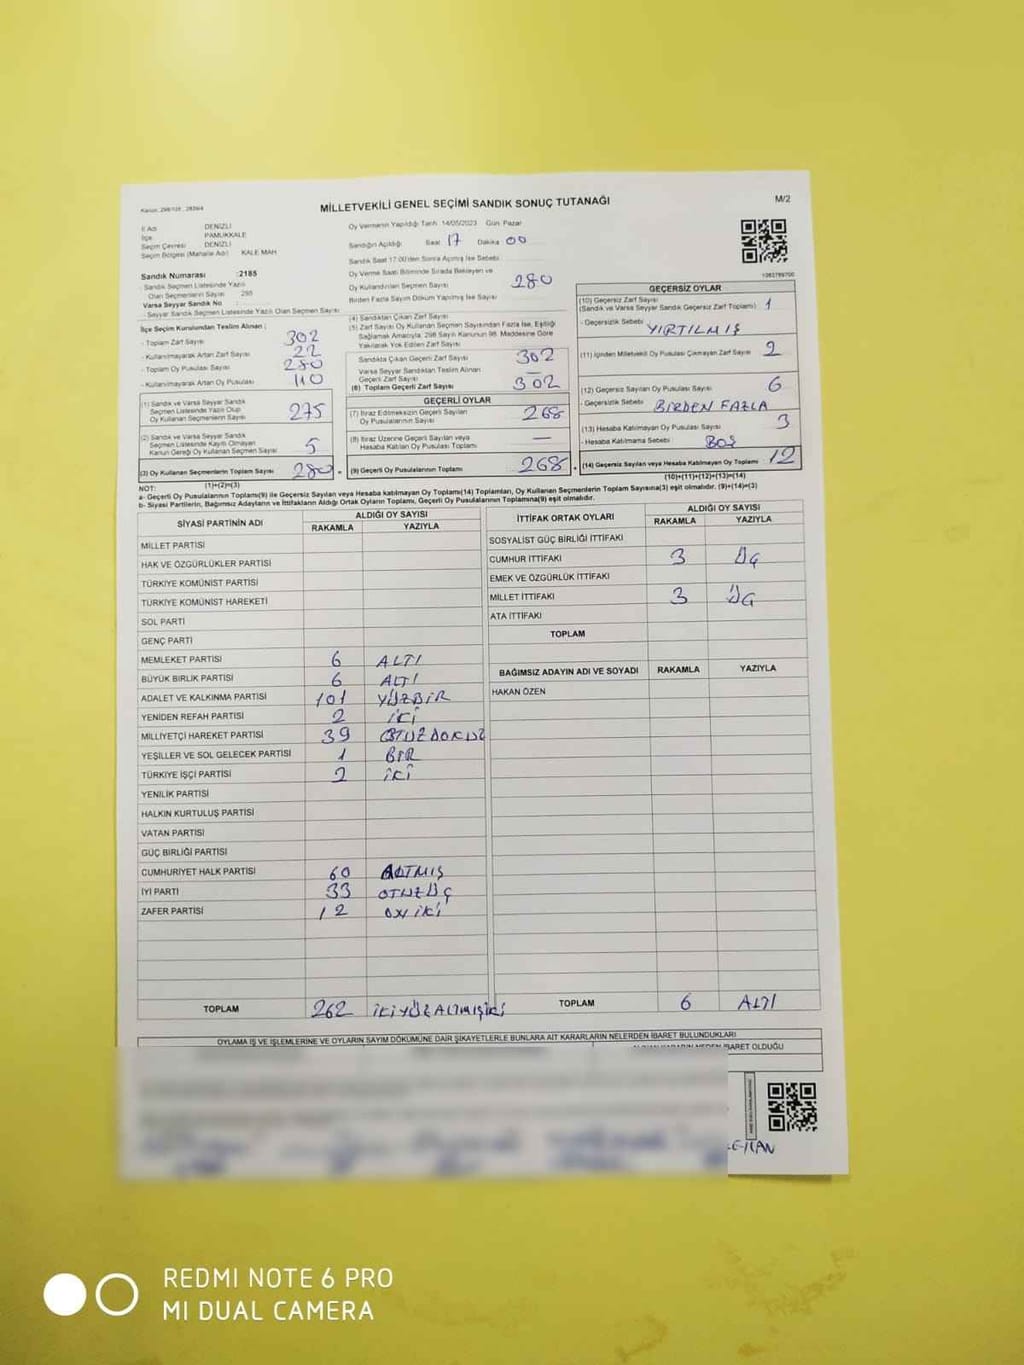 MİLLETVEKİLİ GENEL SEÇİMİ SANDIK SONUÇ TUTANAĞI
M/2
İl Adı DENİZLİ
İlçe PAMUKKALE
Seçim Çevresi DENİZLİ
Seçim Bölgesi (Mahalle Adı) KALE MAH
Sandık Numarası :2185
- Sandık Seçmen Listesinde Yazılı
Olan Seçmenlerin Sayısı 295
Varsa Seyyar Sandık No
- Seyyar Sandık Seçmen Listesinde Yazılı Olan Seçmen Sayısı
İlçe Seçim Kurulundan Teslim Alınan :
- Toplam Zarf Sayısı 302
- Kullanılmayarak Artan Zarf Sayısı 22
- Toplam Oy Pusulası 280
- Kullanılmayarak Artan Oy Pusulası 110
(1) Sandık ve Varsa Seyyar Sandık
Seçmen Listesinde Yazılı Olup
Oy Kullanan Seçmenlerin Sayısı 275
(2) Sandık ve Varsa Seyyar Sandık
Seçmen Listesinde Kayıtlı Olmayan
Kanun Gereği Oy Kullanan Seçmen Sayısı 5
(3) Oy Kullanan Seçmenlerin Toplam Sayısı 280
(1)+(2)=(3)
Oy Vermenin Yapıldığı Tarih 14/05/2023 Gün Pazar
Sandığın Açıldığı Saat 17 Dakika 00
Sandık Saat 17:00'den Sonra Açılmış İse Sebebi
Oy Verme Saati Bitiminde Sırada Bekleyen ve
Oy Kullandırılan Seçmen Sayısı 280
Birden Fazla Sayım Döküm Yapılmış İse Sayısı
(4) Sandıktan Çıkan Zarf Sayısı
(5) Zarf Sayısı Oy Kullanan Seçmen Sayısından Fazla İse, Eşitliği
Sağlamak Amacıyla, 298 Sayılı Kanunun 98. Maddesine Göre
Yakılarak Yok Edilen Zarf Sayısı
Sandıkta Çıkan Geçerli Zarf Sayısı 302
Varsa Seyyar Sandıktan Teslim Alınan
Geçerli Zarf Sayısı —
(6) Toplam Geçerli Zarf Sayısı 302
GEÇERLİ OYLAR
(7) İtiraz Edilmeksizin Geçerli Sayılan
Oy Pusulalarının Sayısı 268
(8) İtiraz Üzerine Geçerli Sayılan veya
Hesaba Katılan Oy Pusulaları Toplamı —
(9) Geçerli Oy Pusulalarının Toplamı 268
GEÇERSİZ OYLAR
(10) Geçersiz Zarf Sayısı
(Sandık ve Varsa Seyyar Sandık Geçersiz Zarf Toplamı) 1
- Geçersizlik Sebebi YIRTILMIŞ
(11) İçinden Milletvekili Oy Pusulası Çıkmayan Zarf Sayısı 2
(12) Geçersiz Sayılan Oy Pusulası Sayısı 6
- Geçersizlik Sebebi BİRDEN FAZLA
(13) Hesaba Katılmayan Oy Pusulası Sayısı 3
- Hesaba Katılmama Sebebi BOŞ
(14) Geçersiz Sayılan veya Hesaba Katılmayan Oy Toplamı 12
(10)+(11)+(12)+(13)=(14)
NOT:
a- Geçerli Oy Pusulalarının Toplamı(9) ile Geçersiz Sayılan veya Hesaba katılmayan Oy Toplamı(14) Toplamları, Oy Kullanan Seçmenlerin Toplam Sayısına(3) eşit olmalıdır. (9)+(14)=(3)
b- Siyasi Partilerin, Bağımsız Adayların ve İttifakların Aldığı Ortak Oyların Toplamı, Geçerli Oy Pusulalarının Toplamına(9) eşit olmalıdır.
SİYASİ PARTİNİN ADI ALDIĞI OY SAYISI
RAKAMLA YAZIYLA
MİLLET PARTİSİ
HAK VE ÖZGÜRLÜKLER PARTİSİ
TÜRKİYE KOMÜNİST PARTİSİ
TÜRKİYE KOMÜNİST HAREKETİ
SOL PARTİ
GENÇ PARTİ
MEMLEKET PARTİSİ 6 ALTI
BÜYÜK BİRLİK PARTİSİ 6 ALTI
ADALET VE KALKINMA PARTİSİ 101 YÜZBİR
YENİDEN REFAH PARTİSİ 2 İKİ
MİLLİYETÇİ HAREKET PARTİSİ 39 OTUZDOKUZ
YEŞİLLER VE SOL GELECEK PARTİSİ 1 BİR
TÜRKİYE İŞÇİ PARTİSİ 2 İKİ
YENİLİK PARTİSİ
HALKIN KURTULUŞ PARTİSİ
VATAN PARTİSİ
GÜÇ BİRLİĞİ PARTİSİ
CUMHURİYET HALK PARTİSİ 60 ALTMIŞ
İYİ PARTİ 33 OTUZÜÇ
ZAFER PARTİSİ 12 ON İKİ
TOPLAM 262 İKİYÜZALTMIŞİKİ
İTTİFAK ORTAK OYLARI ALDIĞI OY SAYISI
RAKAMLA YAZIYLA
SOSYALİST GÜÇ BİRLİĞİ İTTİFAKI
CUMHUR İTTİFAKI 3 ÜÇ
EMEK VE ÖZGÜRLÜK İTTİFAKI
MİLLET İTTİFAKI 3 ÜÇ
ATA İTTİFAKI
TOPLAM
BAĞIMSIZ ADAYIN ADI VE SOYADI RAKAMLA YAZIYLA
HAKAN ÖZEN
TOPLAM 6 ALTI
OYLAMA İŞ VE İŞLEMLERİNE VE OYLARIN SAYIM DÖKÜMÜNE DAİR ŞİKAYETLERLE BUNLARA AİT KARARLARIN NELERDEN İBARET BULUNDUKLARI
REDMI NOTE 6 PRO
MI DUAL CAMERA